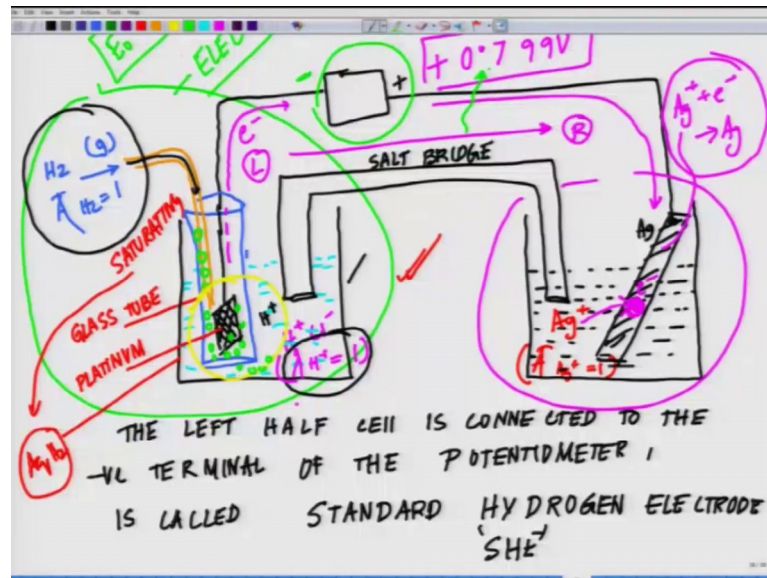 E°
ELEC
+ 0.799V
- +
Ag⁺ + e⁻
→ Ag
H₂ (g)
A H₂ = 1
e⁻
L
R
SALT BRIDGE
SATURATING
GLASS TUBE
PLATINUM
H⁺
(A H⁺ = 1)
Ag
Ag⁺
(A Ag⁺ = 1)
THE LEFT HALF CELL IS CONNECTED TO THE
-VE TERMINAL OF THE POTENTIOMETER,
IS CALLED STANDARD HYDROGEN ELECTRODE
'SHE'